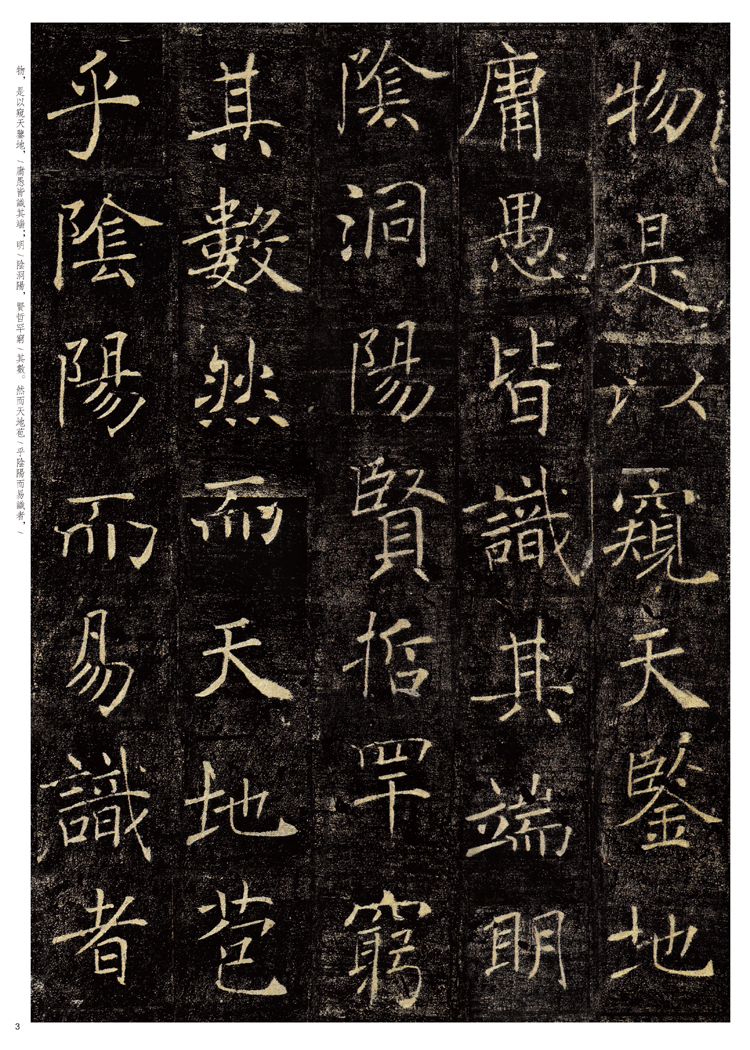 物是以窺天鑒地
庸愚皆識其端明
陰洞陽賢哲罕窮
其數然而天地苞
乎陰陽而易識者
物，是以窺天鑒地，/庸愚皆識其端；明/陰洞陽，賢哲罕窮/其數。然而天地苞/乎陰陽而易識者，/
3